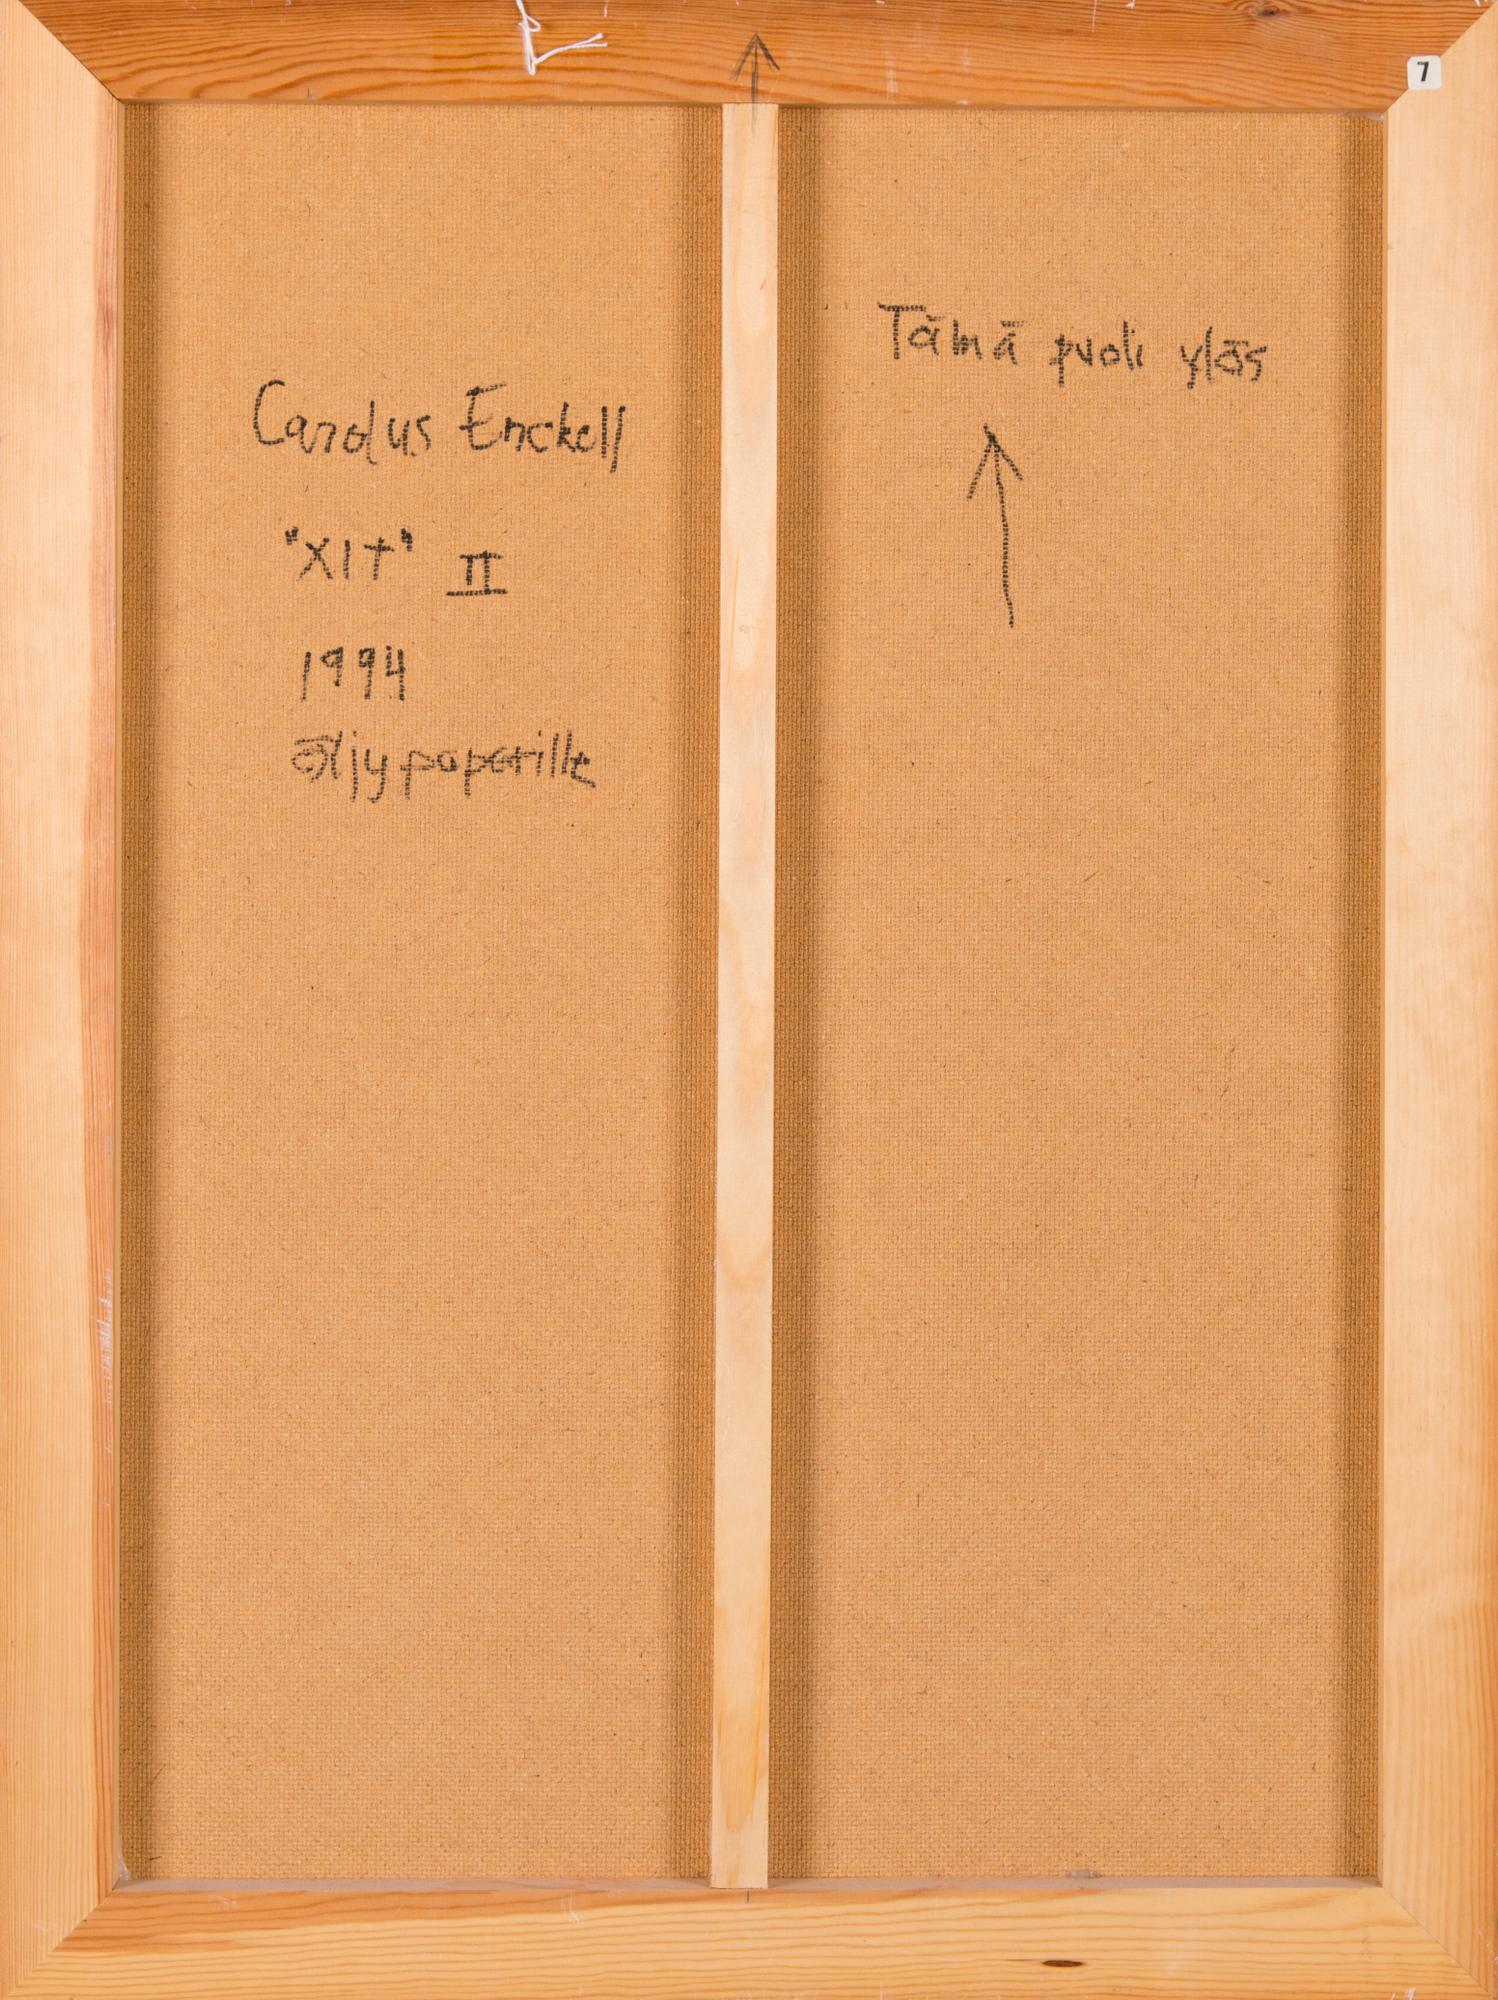 7
Tämä puoli ylös
Carolus Enckell
"XIT" II
1994
öljy paperille